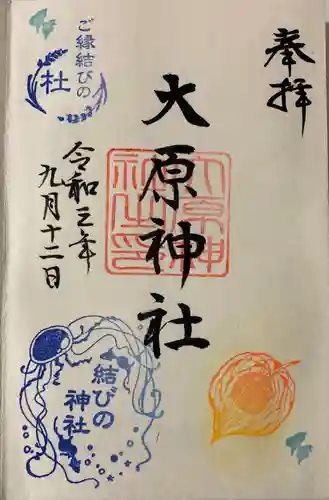 奉拝
大原神社
令和三年
九月十二日
ご縁結びの
杜
結びの
神社